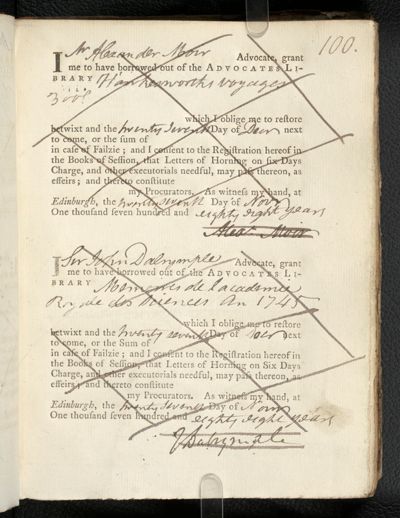 100.
I Mr Alexander Moir Advocate, grant
me to have borrowed out of the ADVOCATES LI-
BRARY Hawkesworths voyages
3 vols
which I oblige me to restore
betwixt and the twenty seventh Day of Decr next
to come, or the sum of
in case of Failzie; and I consent to the Registration hereof in
the Books of Session, that Letters of Horning on six Days
Charge, and other executorials needful, may pass thereon, as
effeirs; and thereto constitute
my Procurators. As witness my hand, at
Edinburgh, the twenty seventh Day of Novr
One thousand seven hundred and eighty eight years
Alexr Moir
I Sir John Dalrymple Advocate, grant
me to have borrowed out of the ADVOCATES LI-
BRARY Memoires de l'academie
Royale des Sciences An 1745
which I oblige me to restore
betwixt and the twenty seventh Day of Decr next
to come, or the Sum of
in case of Failzie; and I consent to the Registration hereof in
the Books of Session, that Letters of Horning on Six Days
Charge, and other executorials needful, may pass thereon, as
effeirs; and thereto constitute
my Procurators. As witness my hand, at
Edinburgh, the twenty seventh Day of Novr
One thousand seven hundred and eighty eight years
J Dalrymple